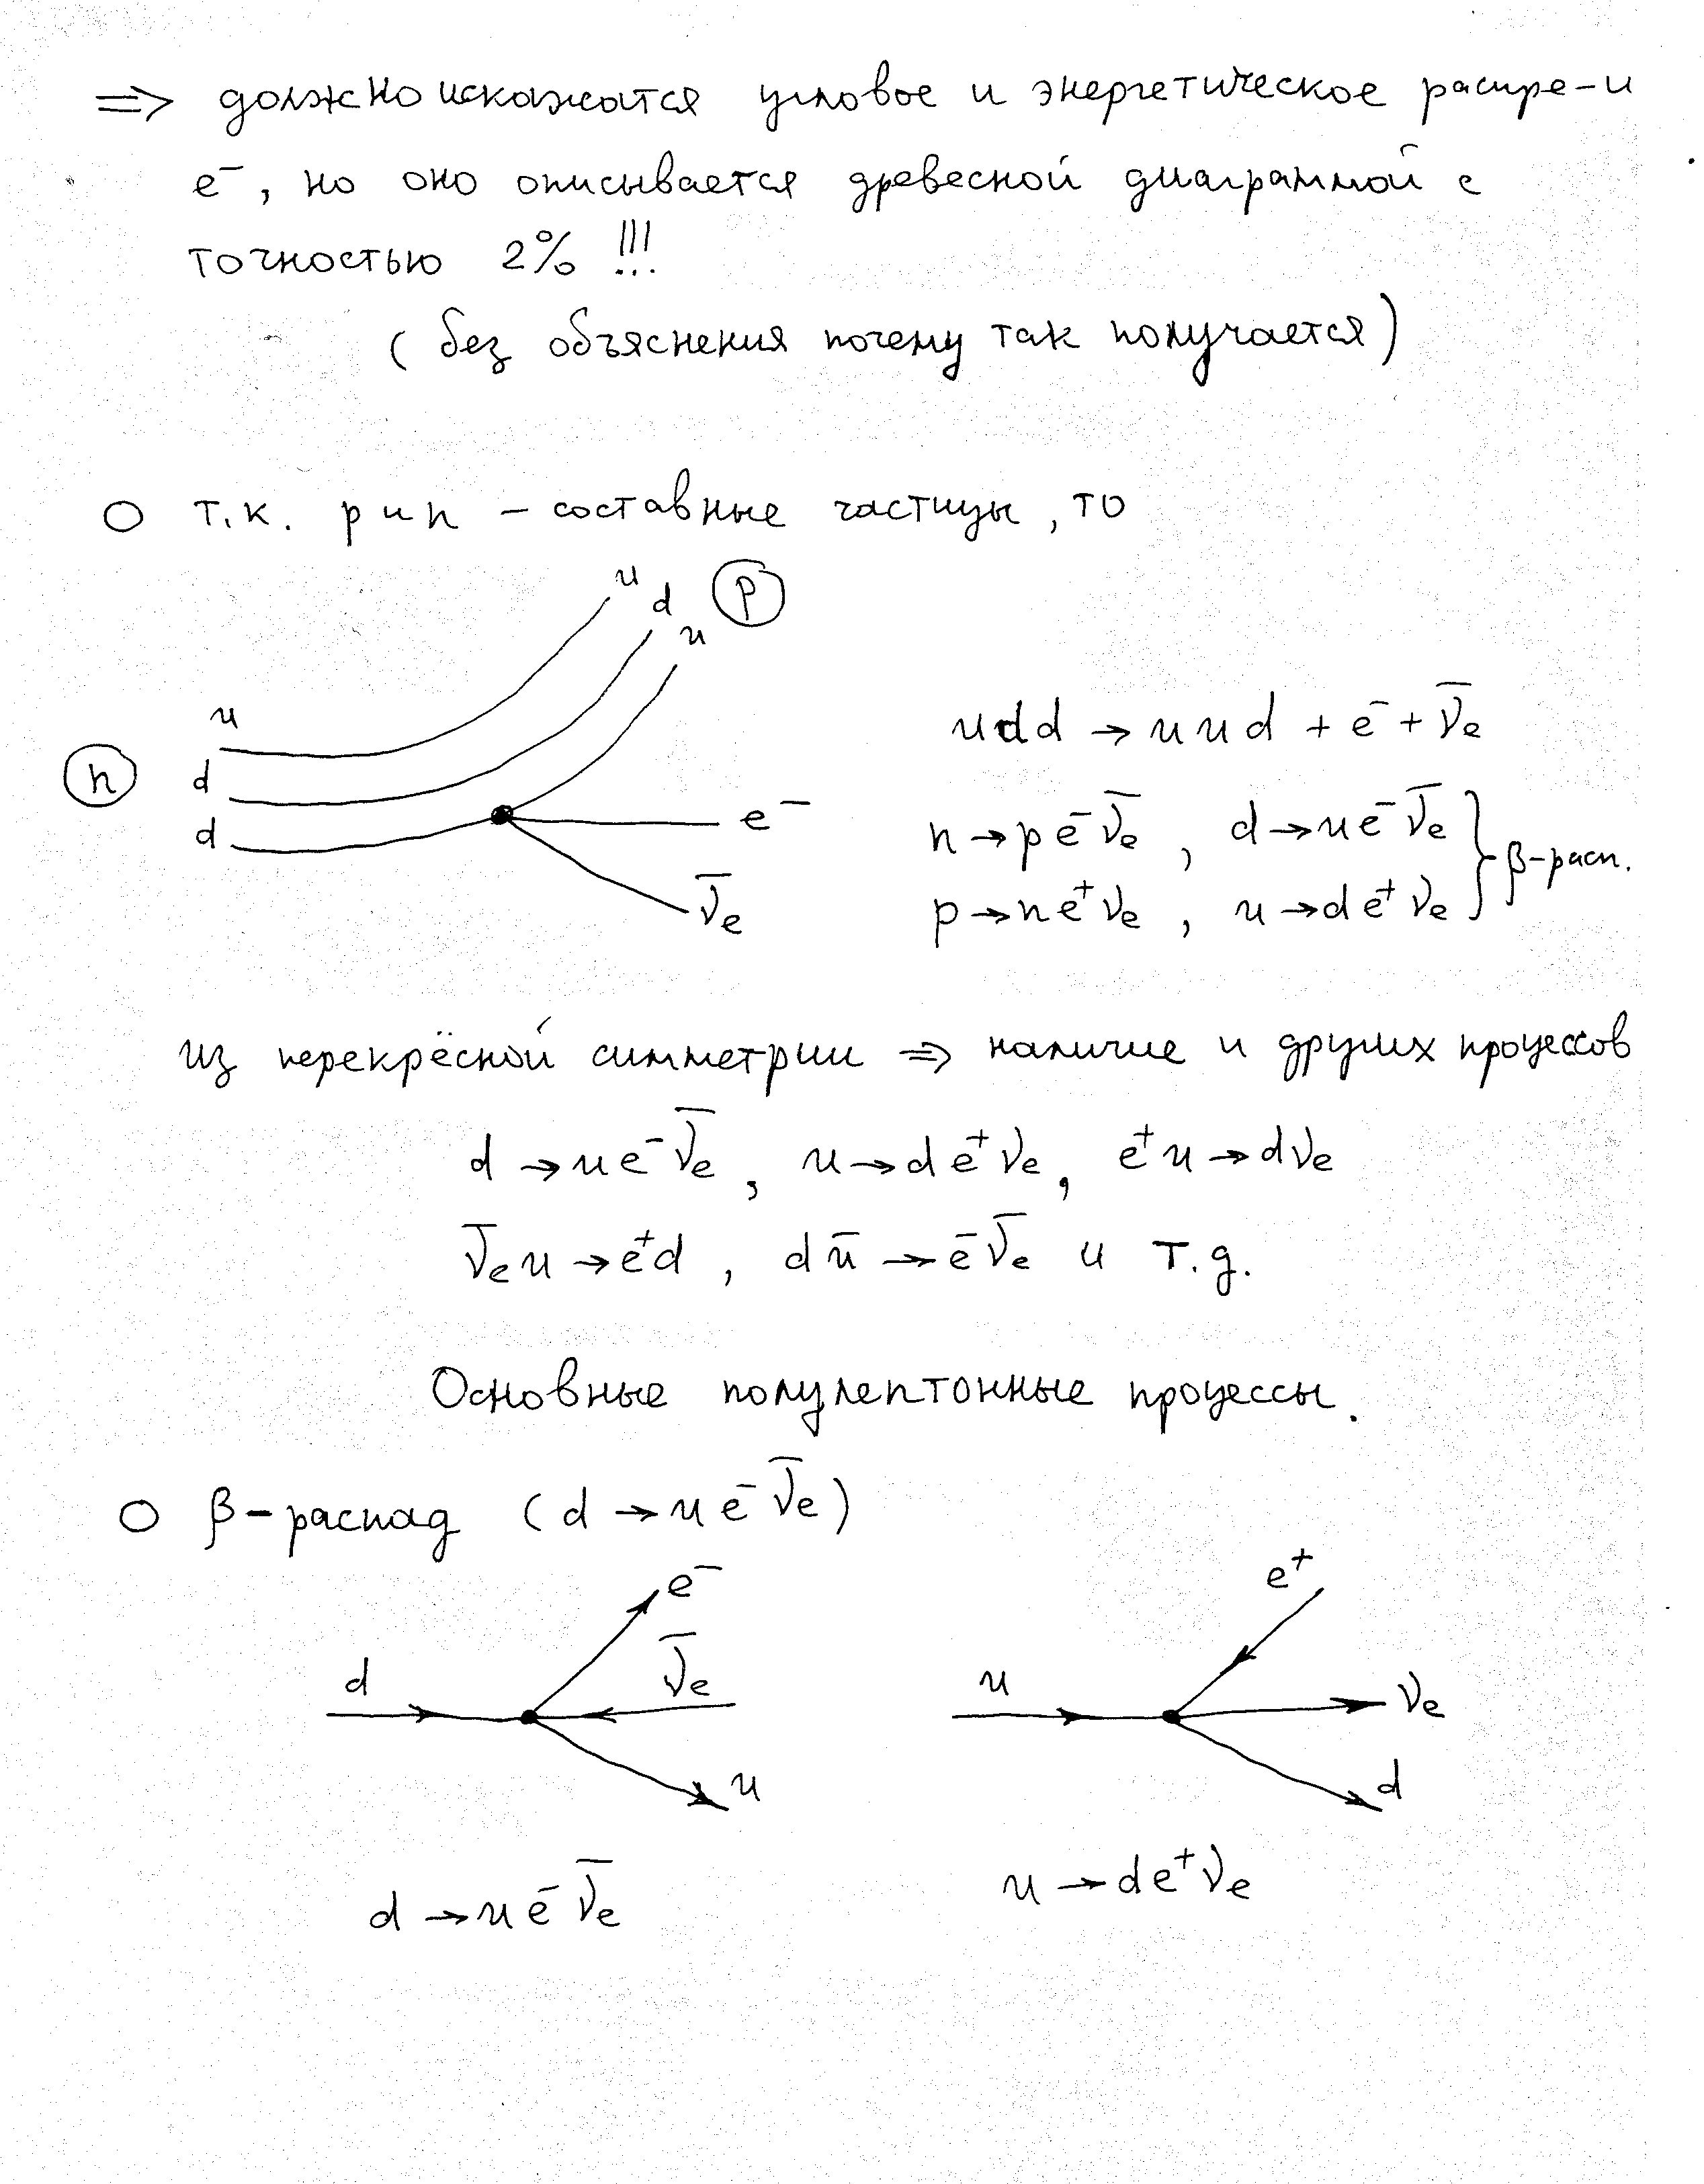 ⇒ должно искажатся угловое и энергетическое распре-и
e⁻, но оно описывается древесной диаграммой с
точностью 2% !!!
(без объяснения почему так получается)
○ т.к. p и n – составные частицы, то
u d u (p)
u
(n) d
d
e⁻
ν̅e
udd → uud + e⁻ + ν̅e
n → p e⁻ ν̅e , d → u e⁻ ν̅e } β-расп.
p → n e⁺ νe , u → d e⁺ νe
из перекрёсной симметрии ⇒ наличие и других процессов
d → u e⁻ ν̅e , u → d e⁺ νe , e⁺ u → d νe
ν̅e u → e⁺ d , d u̅ → e⁻ ν̅e и т.д.
Основные полулептонные процессы.
○ β-распад (d → u e⁻ ν̅e)
d e⁻ ν̅e u
u e⁺ νe d
d → u e⁻ ν̅e
u → d e⁺ νe